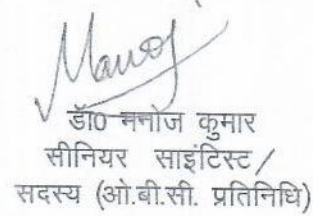 Manoj
डॉ0 मनोज कुमार
सीनियर साइंटिस्ट /
सदस्य (ओ.बी.सी. प्रतिनिधि)